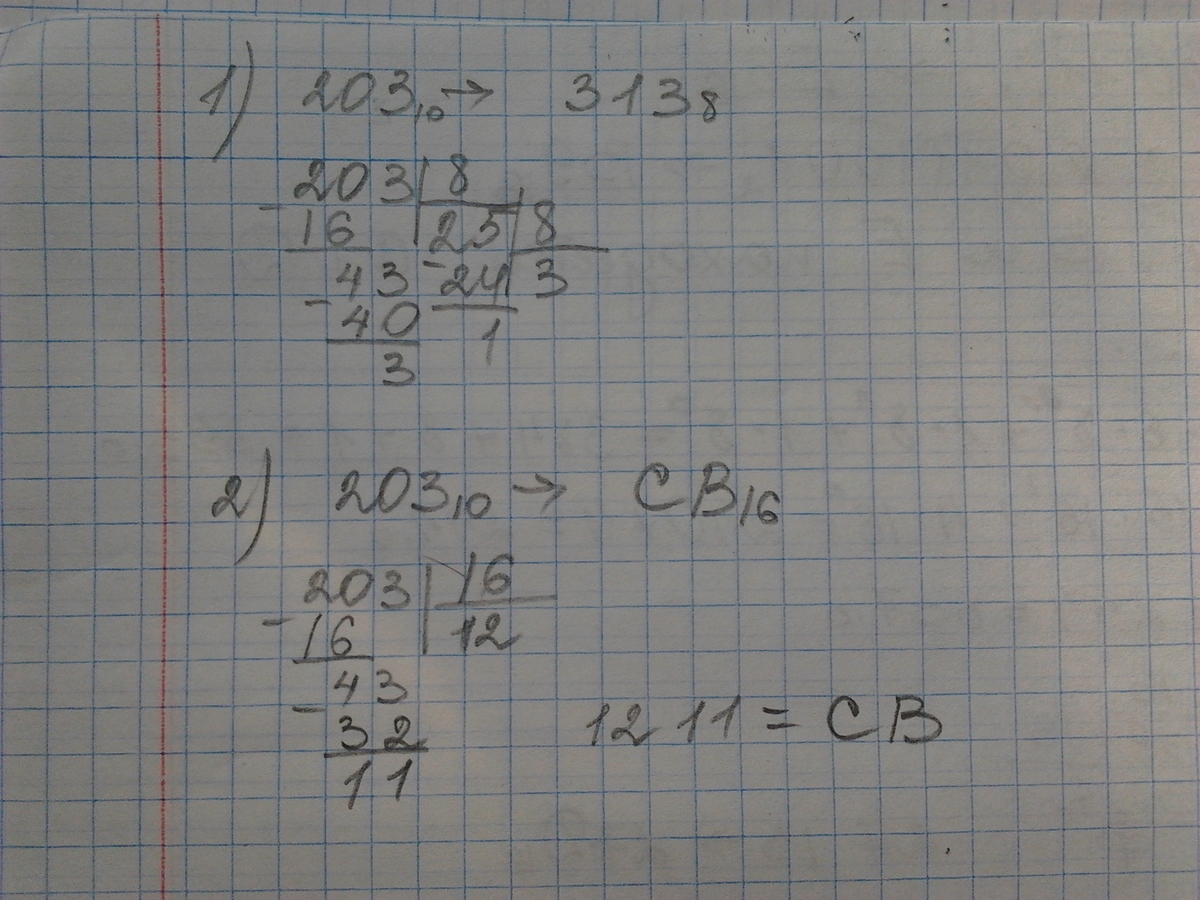 1) 203₁₀ → 313₈
203 | 8
- 16 | 25 | 8
43 - 24 | 3
- 40 1
3
2) 203₁₀ → CB₁₆
203 | 16
- 16 | 12
- 43
32 12 11 = CB
11